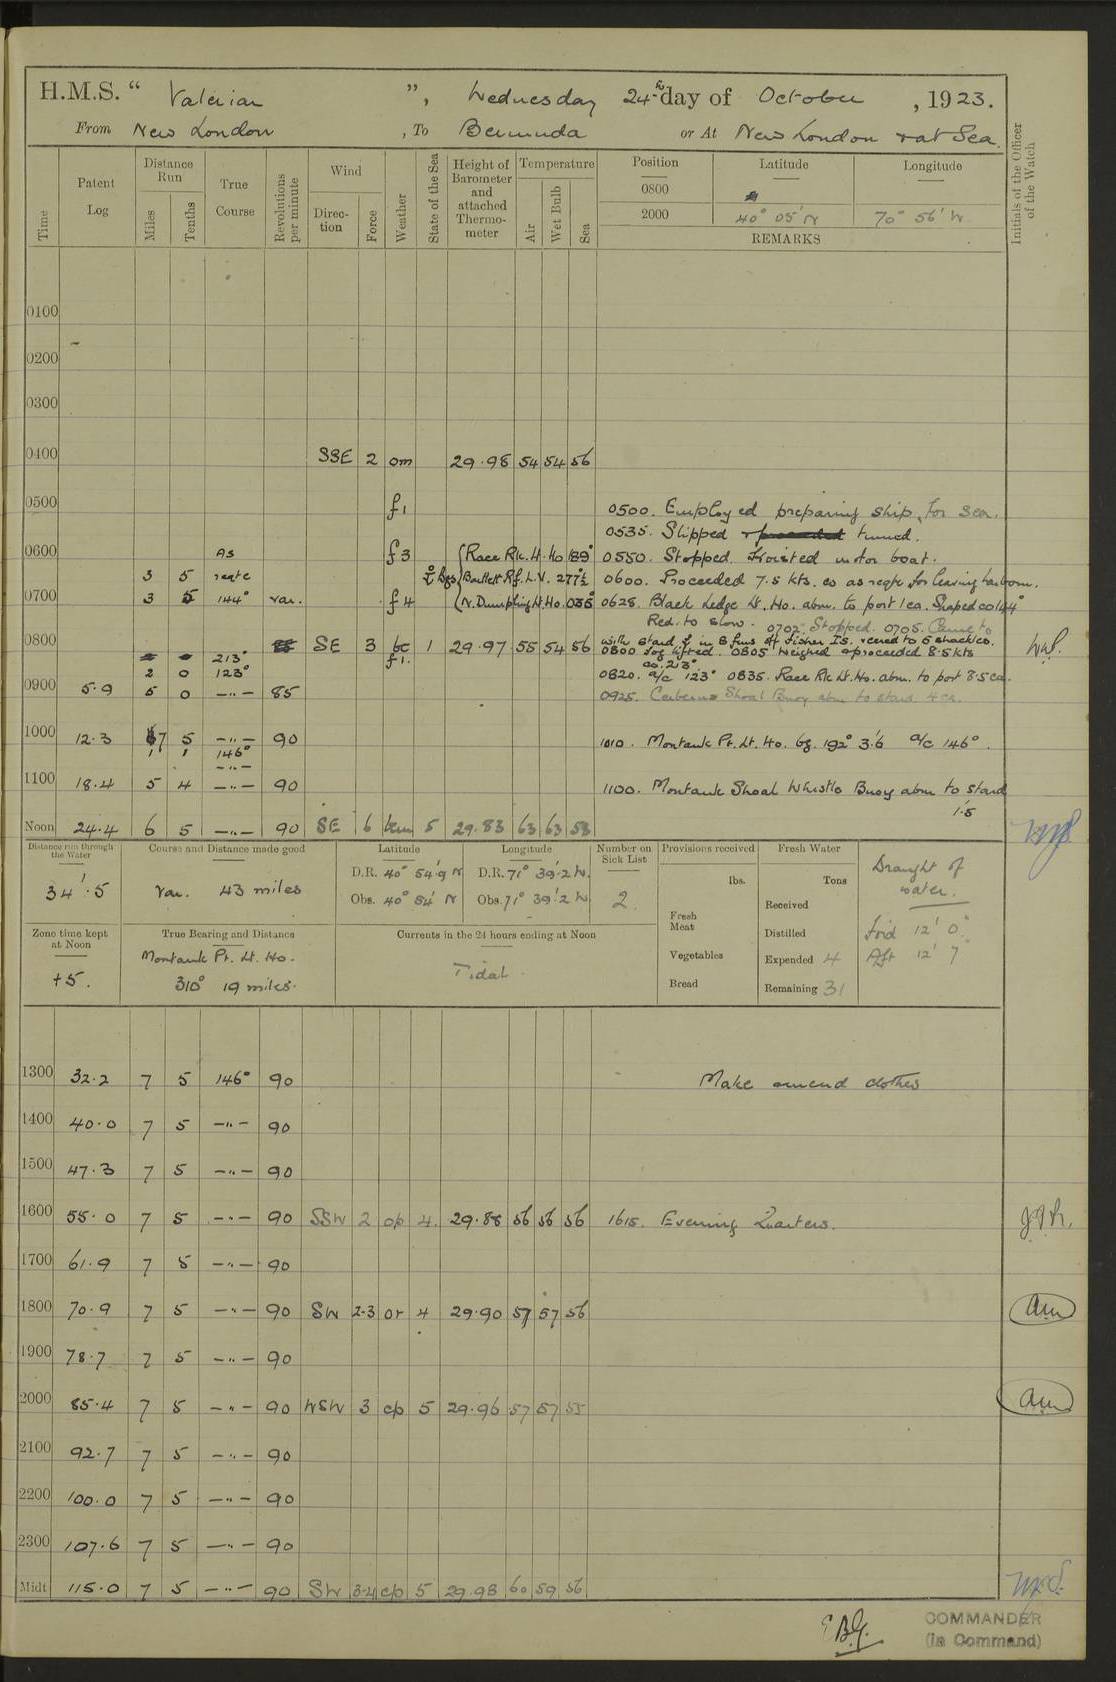 H.M.S. “ Valerian ”, Wednesday 24th day of October , 1923.
From New London , To Bermuda or At New London & at Sea.
Time
Patent Log
Distance Run
Miles
Tenths
True Course
Revolutions per minute
Wind
Direction
Force
Weather
State of the Sea
Height of Barometer and attached Thermometer
Temperature
Air
Wet Bulb
Sea
Position Latitude Longitude
0800
2000 40° 05' N 70° 56' W
REMARKS
Initials of the Officer of the Watch
0100
0200
0300
0400 SSE 2 om 29.98 54 54 56
0500 f1 0500. Employed preparing ship for sea.
0535. Slipped turned.
0600 As f3 Race Rk. Lt. Ho 189° 0550. Stopped. Hoisted motor boat.
3 5 reqte Bgs Bartlett Rf. L.V. 277°½ 0600. Proceeded 7.5 kts. co as reqte for leaving harbour.
0700 3 5 144° var. f4 N. Dumpling Lt. Ho. 035° 0628. Black Ledge Lt. Ho. abm. to port 1 ca. Shaped co 144°
Red. to slow. 0702 Stopped. 0705. Came to
0800 SE 3 bc 1 29.97 55 54 56 with stard in 8 fms off Fisher Is. veered to 5 shackles.
213° f1. 0800 fog lifted. 0805 Weighed & proceeded 8.5 kts
co. 213°
2 0 123° 0820. a/c 123° 0835. Race Rk Lt. Ho. abm. to port 3.5 ca.
0900 5.9 5 0 —"— 85 0925. Cerberus Shoal Buoy abm to stard. 4 ca.
1000 12.3 7 5 —"— 90 1010. Montauk Pt. Lt. Ho. bg. 192° 3'.6 a/c 146°.
1 1 146°
—"—
1100 18.4 5 4 —"— 90 1100. Montauk Shoal Whistle Buoy abm to stard
1'.5
Noon 24.4 6 5 —"— 90 SE 6 5 29.83 63 63 58
Distance run through the Water
34'.5
Course and Distance made good
Var. 43 miles
Latitude
D.R. 40° 54'.9 N
Obs. 40° 54' N
Longitude
D.R. 71° 39'.2 W.
Obs. 71° 39'.2 W.
Number on Sick List
2.
Provisions received
lbs.
Fresh Meat
Vegetables
Bread
Fresh Water
Tons
Received
Distilled
Expended 4
Remaining 31
Draught of water.
Ford 12' 0"
Aft 12' 7"
Zone time kept at Noon
+5.
True Bearing and Distance
Montauk Pt. Lt. Ho.
310° 19 miles.
Currents in the 24 hours ending at Noon
Tidal.
1300 32.2 7 5 146° 90 Make & mend clothes
1400 40.0 7 5 —"— 90
1500 47.3 7 5 —"— 90
1600 55.0 7 5 —"— 90 SSW 2 op 4. 29.88 56 56 56 1615. Evening Quarters.
1700 61.9 7 5 —"— 90
1800 70.9 7 5 —"— 90 SW 2-3 or 4 29.90 57 57 56
1900 78.7 7 5 —"— 90
2000 85.4 7 5 —"— 90 WSW 3 cp 5 29.96 57 57 55
2100 92.7 7 5 —"— 90
2200 100.0 7 5 —"— 90
2300 107.6 7 5 —"— 90
Midt 115.0 7 5 —"— 90 SW 3-4 cp 5 29.98 60 59 56
COMMANDER
(in Command)